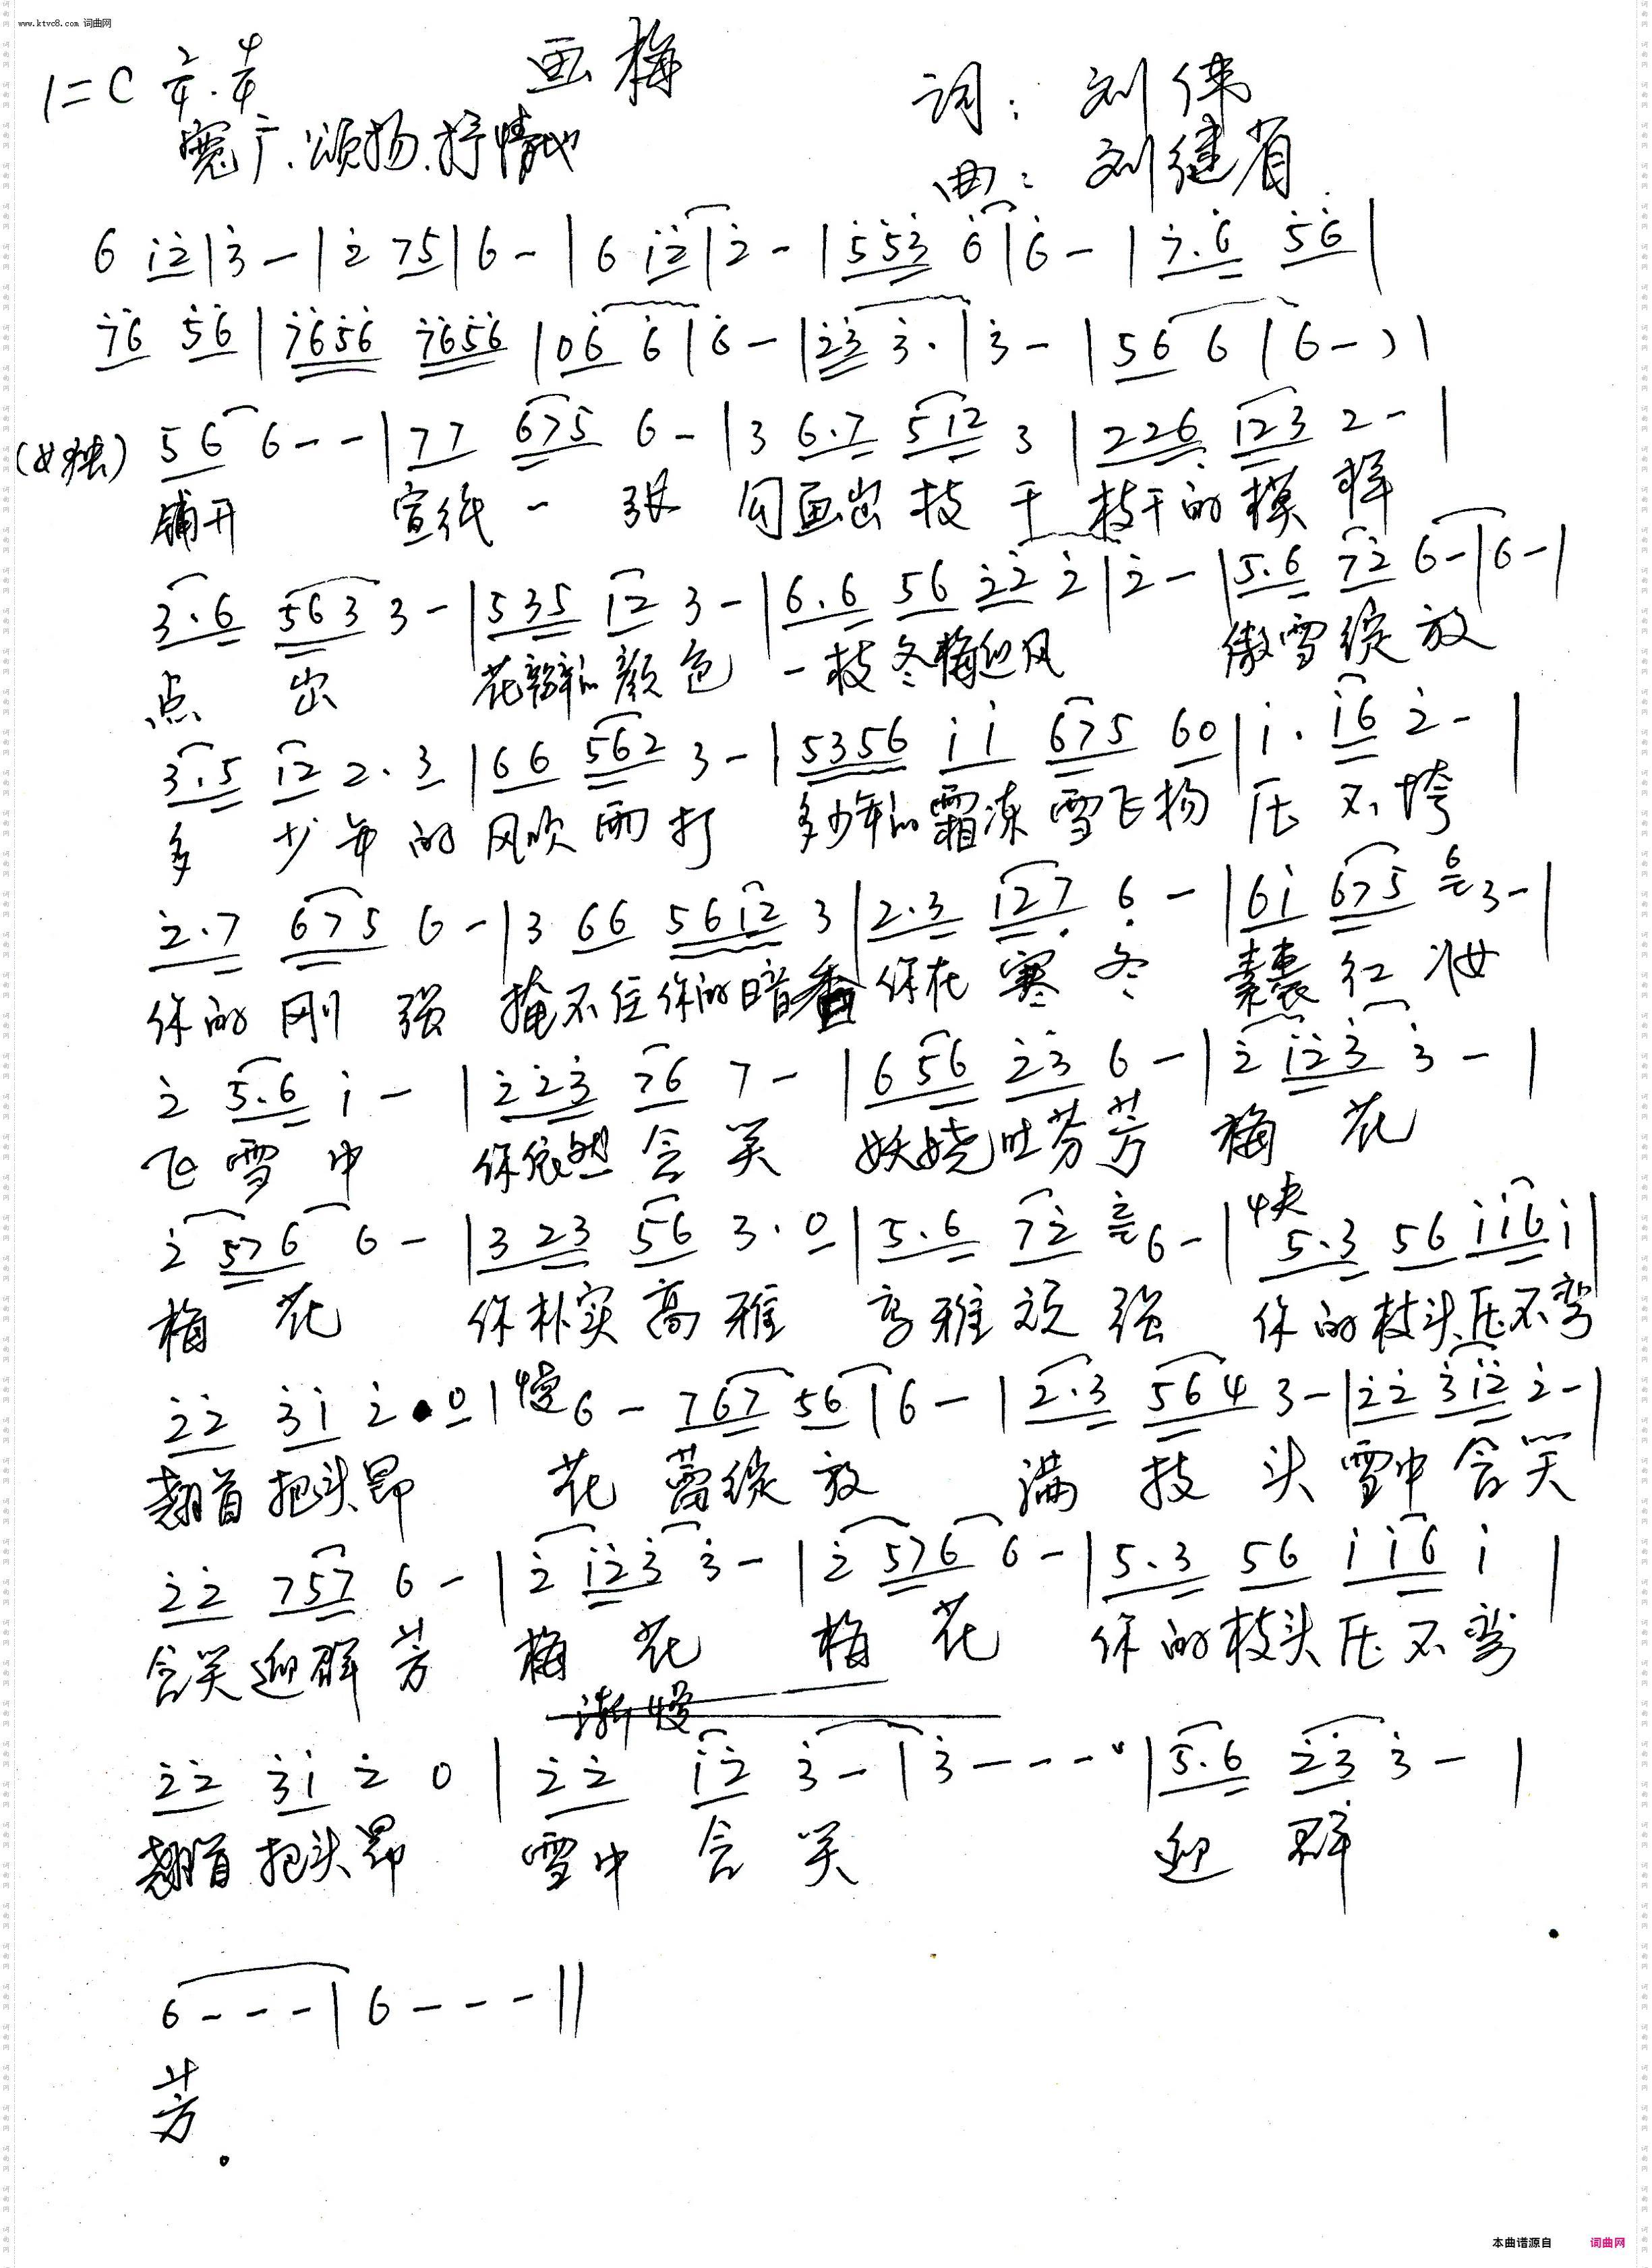 www.ktvc8.com 词曲网
画梅
1=C 2/4 . 4/4
词：刘伟
宽广.颂扬.抒情地
曲：刘继省
6 i̇2̇|3̇-|2̇ 75|6-|6 i̇2̇|2̇-|5̇5̇3̇ 6̇|6̇-|7̇.6̇ 5̇6̇|
7̇6̇ 5̇6̇|7̇6̇5̇6̇ 7̇6̇5̇6̇|06̇ 6̇|6̇-|2̇3̇ 3̇.|3̇-|56 6|6-)|
(女独) 56 6--|77 675 6-|3 6.7 512 3|226̣ 123 2-|
铺开 宣纸一张 勾画出枝干 枝干的模样
3.6 563 3-|535 i̇2 3-|6.6 56 2̇2̇ 2̇|2̇-|5.6 72̇ 6-|6-|
点出 花瓣的颜色 一枝冬梅迎风 傲雪绽放
3.5 12 2.3|66 562 3-|5356 i̇i̇ 675 60|i̇. i̇6 2̇-|
多少年的风吹雨打 多少年的霜冻雪飞扬 压不垮
2̇.7 675 6-|3 66 56i̇2̇ 3|2.3 127̣ 6̣-|6i̇ 675 6 3-|
你的刚强 掩不住你的暗香 你在寒冬 素裹红妆
2̇ 5.6 i̇-|2̇2̇3̇ 76 7-|656 2̇3̇ 6-|2̇ i̇2̇3̇ 3̇-|
飞雪中 你依然含笑 妖娆吐芬芳 梅花
2̇ 576 6-|3 23 56 3.0|5.6 72̇ 6-|快 5.3 56 i̇i̇6 i̇|
梅花 你朴实高雅 高雅顽强 你的枝头压不弯
2̇2̇ 3̇i̇ 2̇.0|慢 6- 767 56|6-|2.3 564 3-|2̇2̇ 3̇i̇2̇ 2̇-|
翘首把头昂 花蕾绽放 满枝头 雪中含笑
2̇2̇ 757 6-|2̇ i̇2̇3̇ 3̇-|2̇ 576 6-|5.3 56 i̇i̇6 i̇|
含笑迎群芳 梅花 梅花 你的枝头压不弯
渐慢
2̇2̇ 3̇i̇ 2̇ 0|2̇2̇ i̇2̇ 3̇-|3̇---|5.6 2̇3̇ 3̇-|
翘首把头昂 雪中含笑 迎群
6---|6---||
芳。
本曲谱源自 词曲网